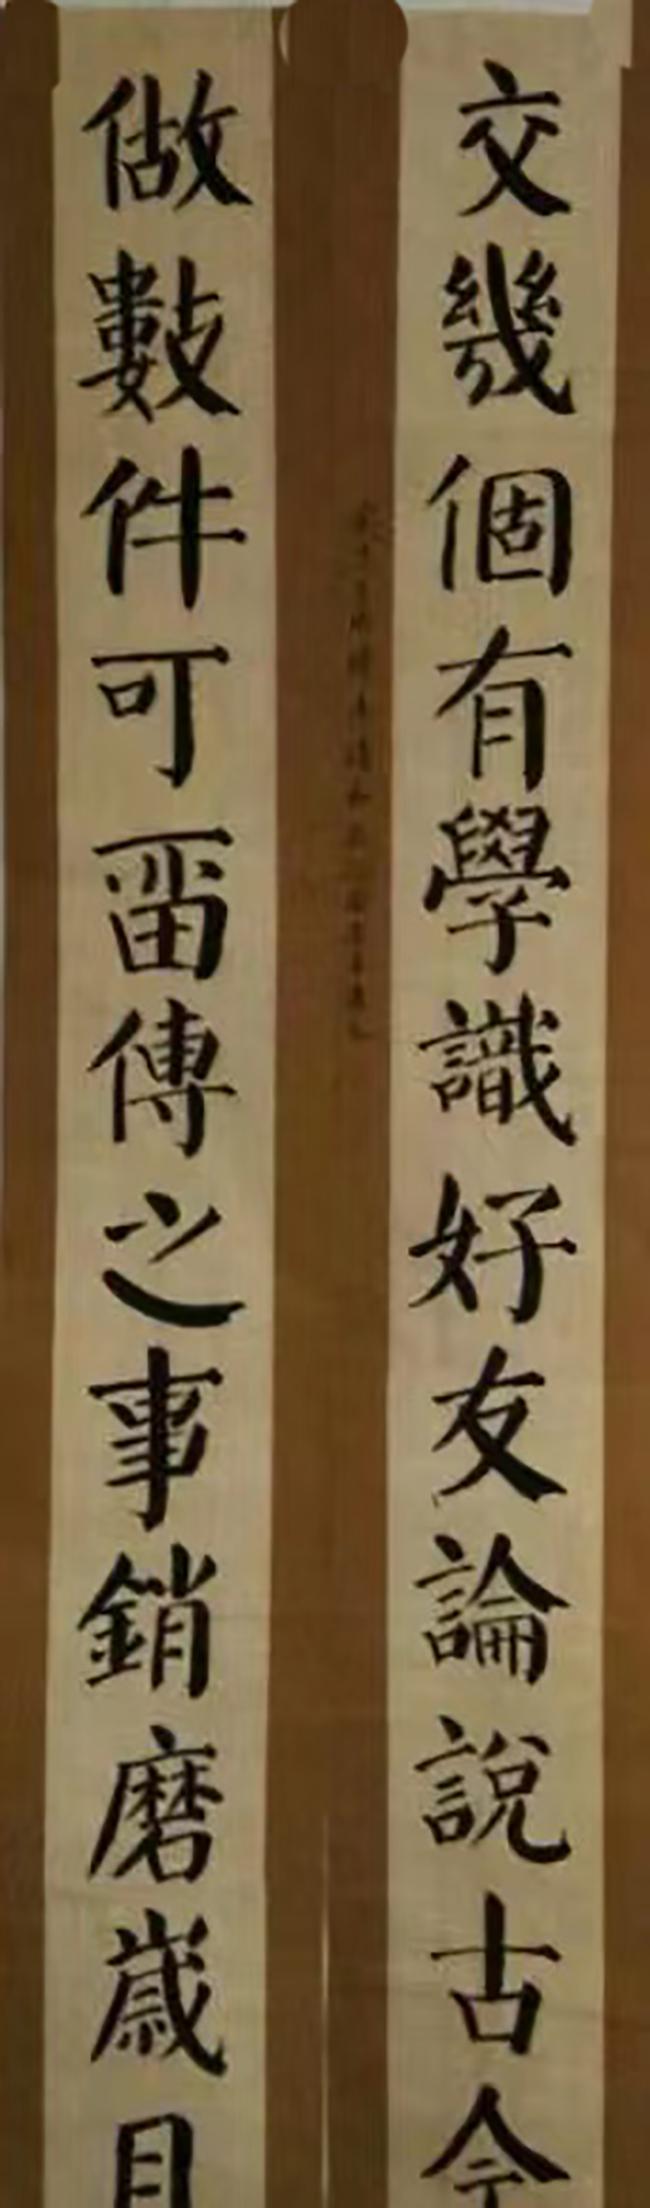 交幾個有學識好友論說古今
做數件可畱傳之事銷磨歲月